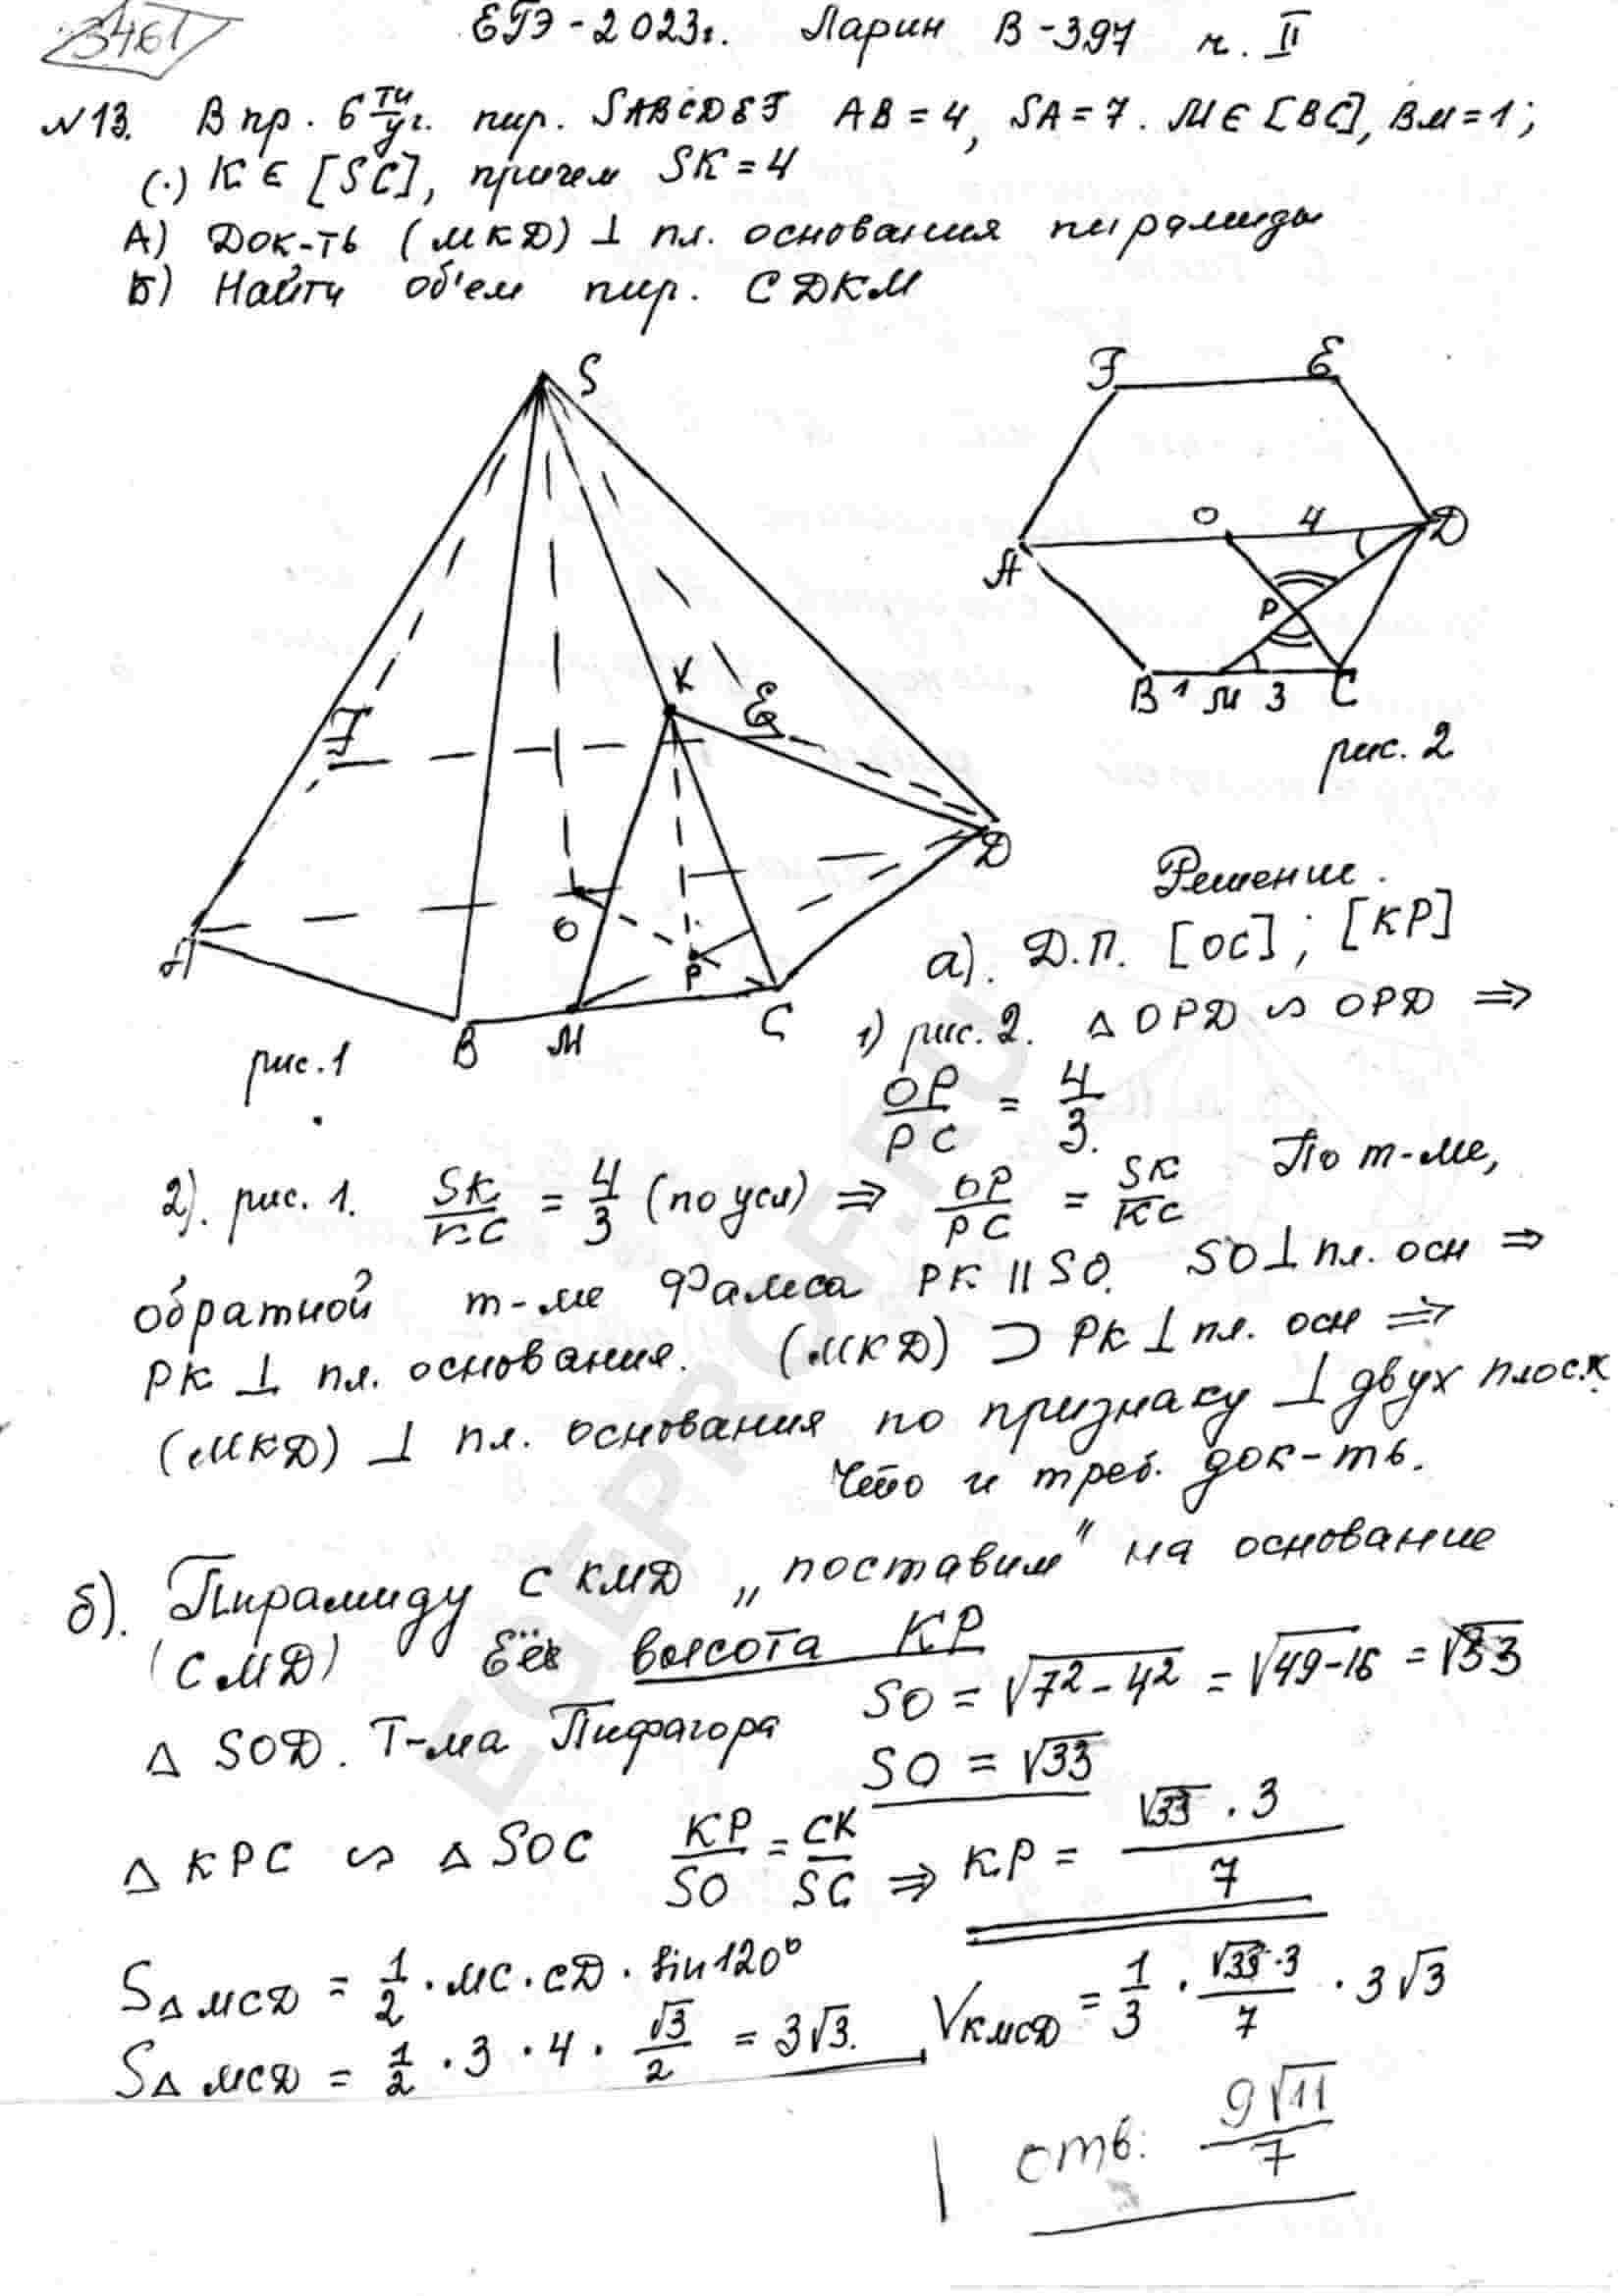 3461
ЕГЭ-2023г. Ларин В-397 ч. II
№13. В пр. 6 ти уг. пир. SABCDEF AB = 4, SA = 7. M ∈ [BC], BM = 1;
(·) K ∈ [SC], причем SK = 4
А) Док-ть (MKD) ⊥ пл. основания пирамиды
Б) Найти об'ем пир. CDKM
S
K
F
E
A
O
P
D
B
M
C
рис. 1
F
E
O
4
A
D
P
B
1
M
3
C
рис. 2
Решение.
а). Д.П. [OC]; [KP]
1) рис. 2. △ OPD ∽ OPD ⇒
OP/PC = 4/3.
2). рис. 1. SK/KC = 4/3 (по усл) ⇒ OP/PC = SK/KC По т-ме,
обратной т-ме Фалеса PK || SO. SO ⊥ пл. осн ⇒
PK ⊥ пл. основания. (MKD) ⊃ PK ⊥ пл. осн ⇒
(MKD) ⊥ пл. основания по признаку ⊥ двух плоск
Что и треб. док-ть.
б). Пирамиду CKMD „поставим" на основание
(CMD) Её высота KP
△ SOD. Т-ма Пифагора SO = √(7² - 4²) = √(49-16) = √33
SO = √33
△ KPC ∽ △ SOC KP/SO = CK/SC ⇒ KP = √33 · 3 / 7
S△MCD = 1/2 · MC · CD · sin 120°
S△MCD = 1/2 · 3 · 4 · √3/2 = 3√3.
VKMCD = 1/3 · √33·3/7 · 3√3
отв: 9√11/7
EGEPROF.RU